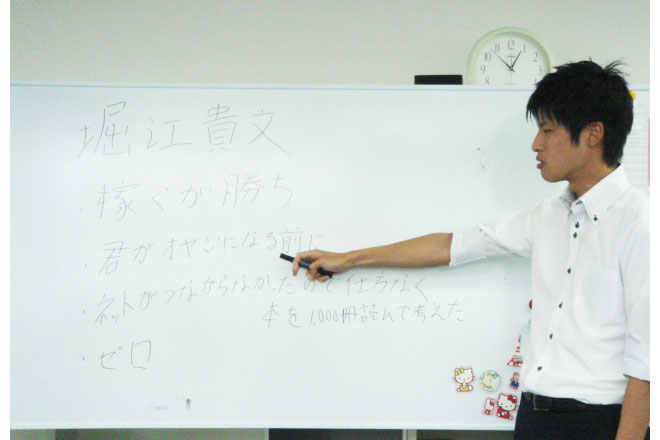 堀江貴文
・稼ぐが勝ち
・君がオヤジになる前に
・ネットがつながらなかったので仕方なく
本を1,000冊読んで考えた
・ゼロ